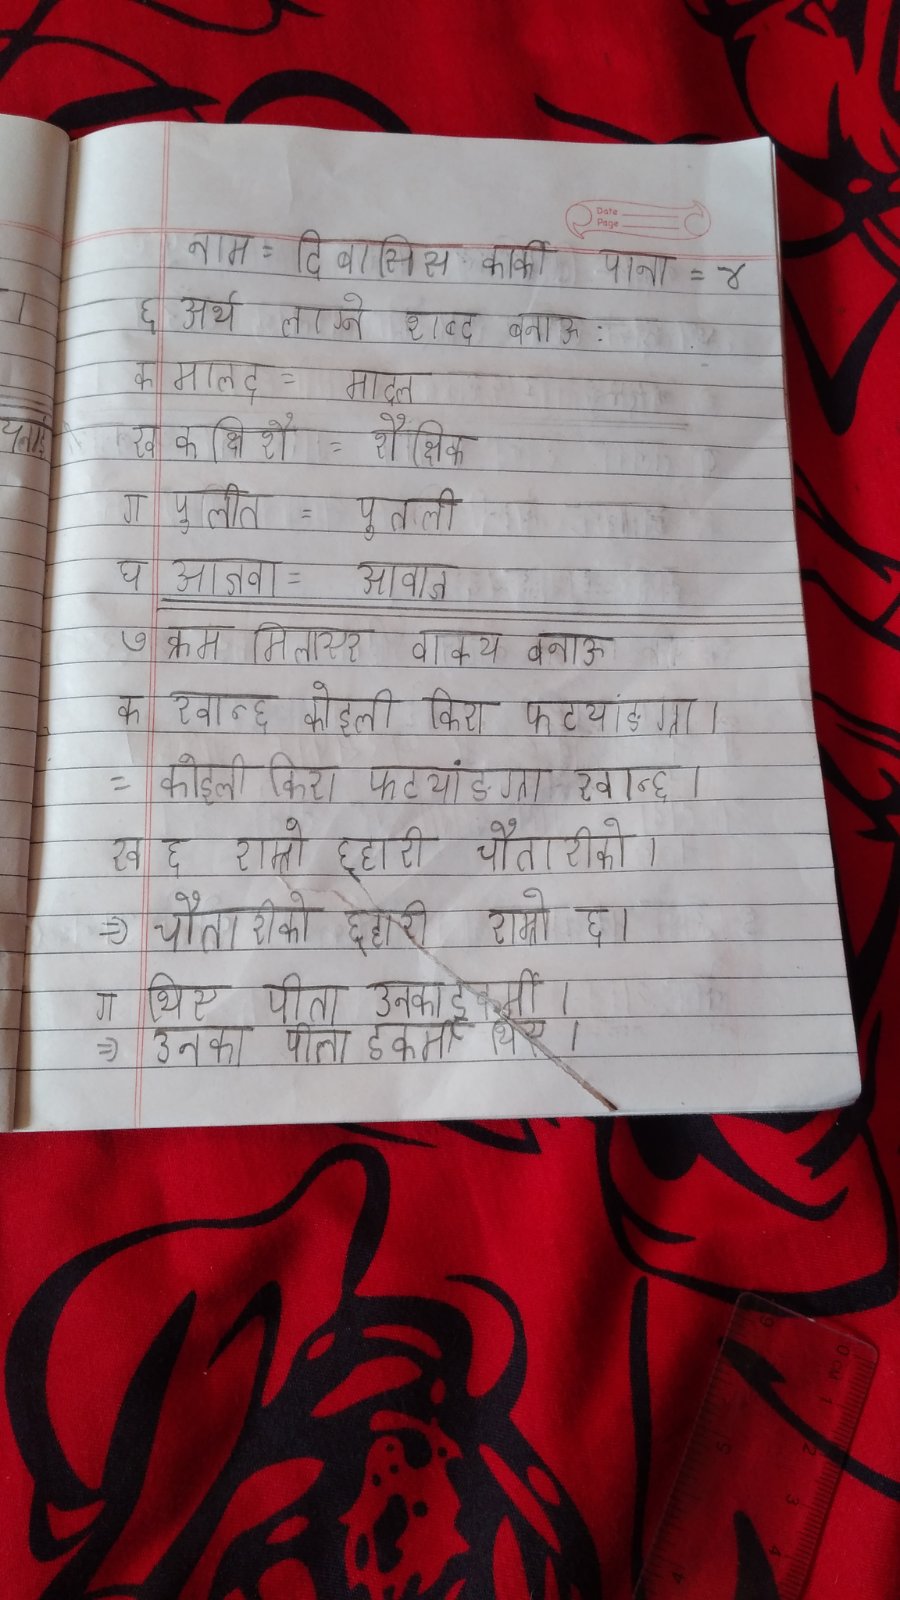 Date
Page
नाम = दिवासिस कार्की पाना = ४
६ अर्थ लाग्ने शब्द बनाऊ :
क मालद = मादल
ख कक्षिशै = शैक्षिक
ग पुलीत = पुतली
घ आजवा = आवाज
७ क्रम मिलाएर वाक्य बनाऊ
क खान्छ कोइली किरा फटयांङग्रा ।
= कोइली किरा फटयांङग्रा खान्छ ।
ख छ राम्रो छहारी चौतारीको ।
⇒ चौतारीको छहारी राम्रो छ ।
ग थिए पीता उनका डकर्मी ।
⇒ उनका पीता डकर्मी थिए ।